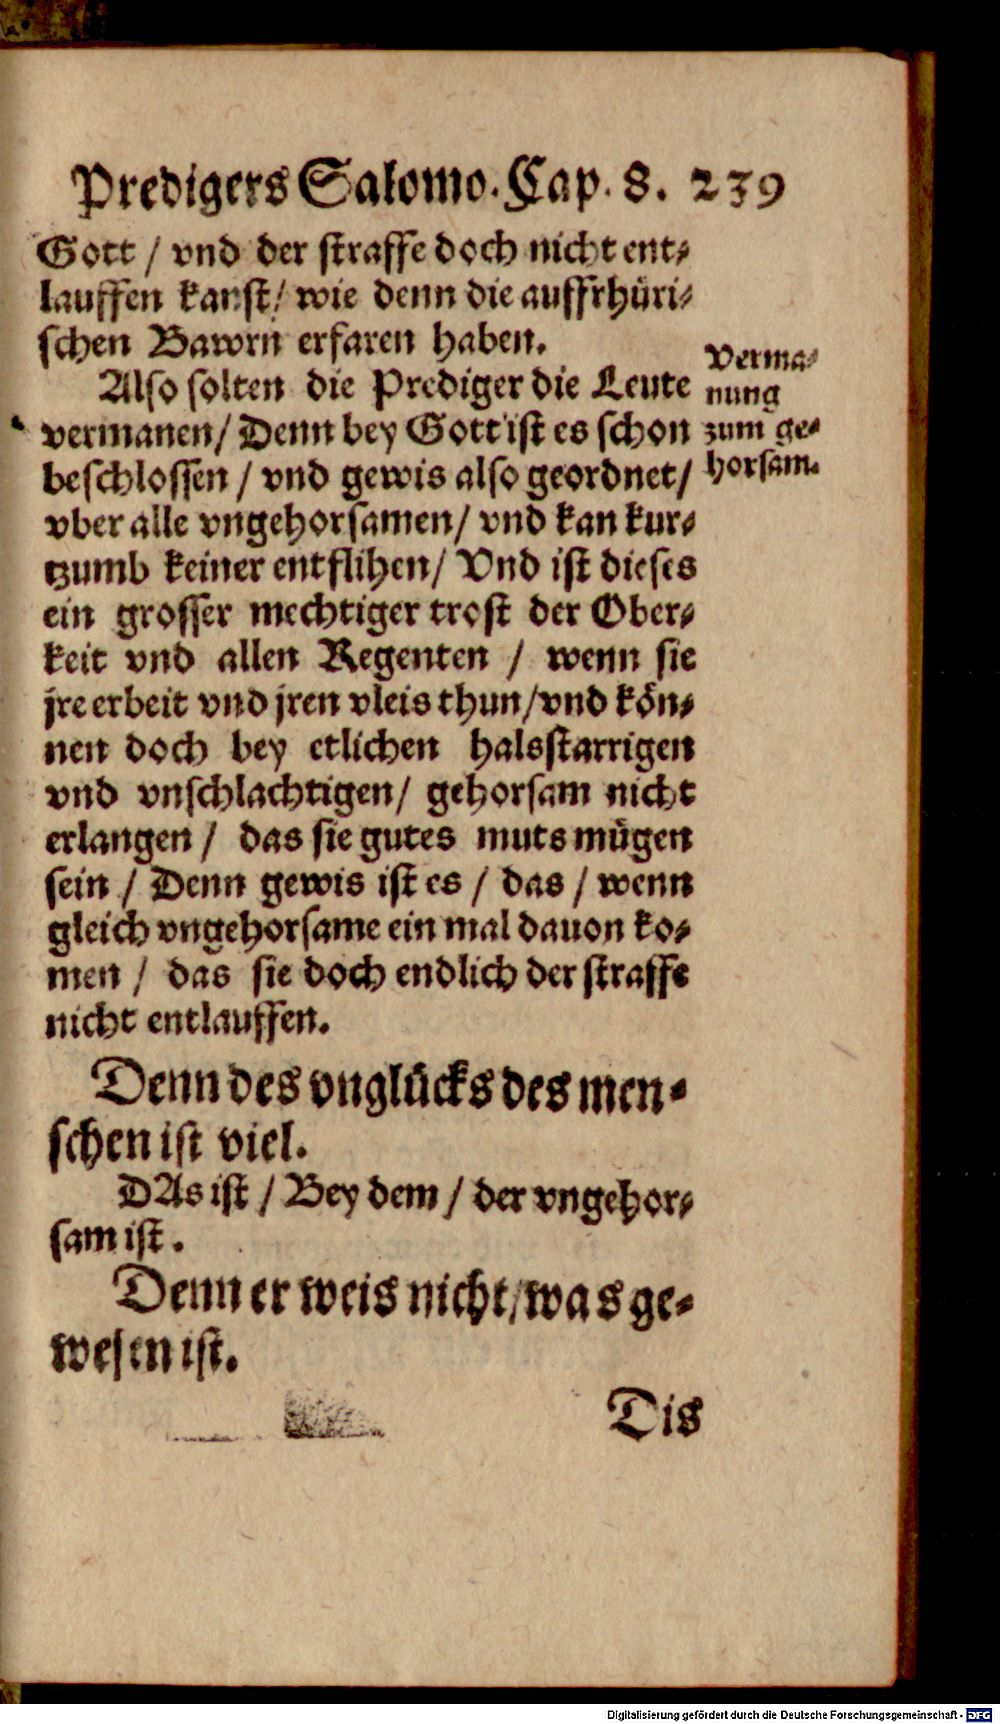 Predigers Salomo. Cap. 8. 239
Gott / vnd der straffe doch nicht ent-
lauffen kanst / wie denn die auffrhüri-
schen Bawrn erfaren haben.
Also solten die Prediger die Leute
vermanen / Denn bey Gott ist es schon
beschlossen / vnd gewis also geordnet /
vber alle vngehorsamen / vnd kan kur-
tzumb keiner entflihen / Vnd ist dieses
ein grosser mechtiger trost der Ober-
keit vnd allen Regenten / wenn sie
jre erbeit vnd jren vleis thun / vnd kön-
nen doch bey etlichen halsstarrigen
vnd vnschlachtigen / gehorsam nicht
erlangen / das sie gutes muts mügen
sein / Denn gewis ist es / das / wenn
gleich vngehorsame ein mal dauon ko-
men / das sie doch endlich der straffe
nicht entlauffen.
Verma-
nung
zum ge-
horsam.
Denn des vnglücks des men-
schen ist viel.
DAs ist / Bey dem / der vngehor-
sam ist.
Denn er weis nicht / was ge-
wesen ist.
Dis
Digitalisierung gefördert durch die Deutsche Forschungsgemeinschaft - DFG